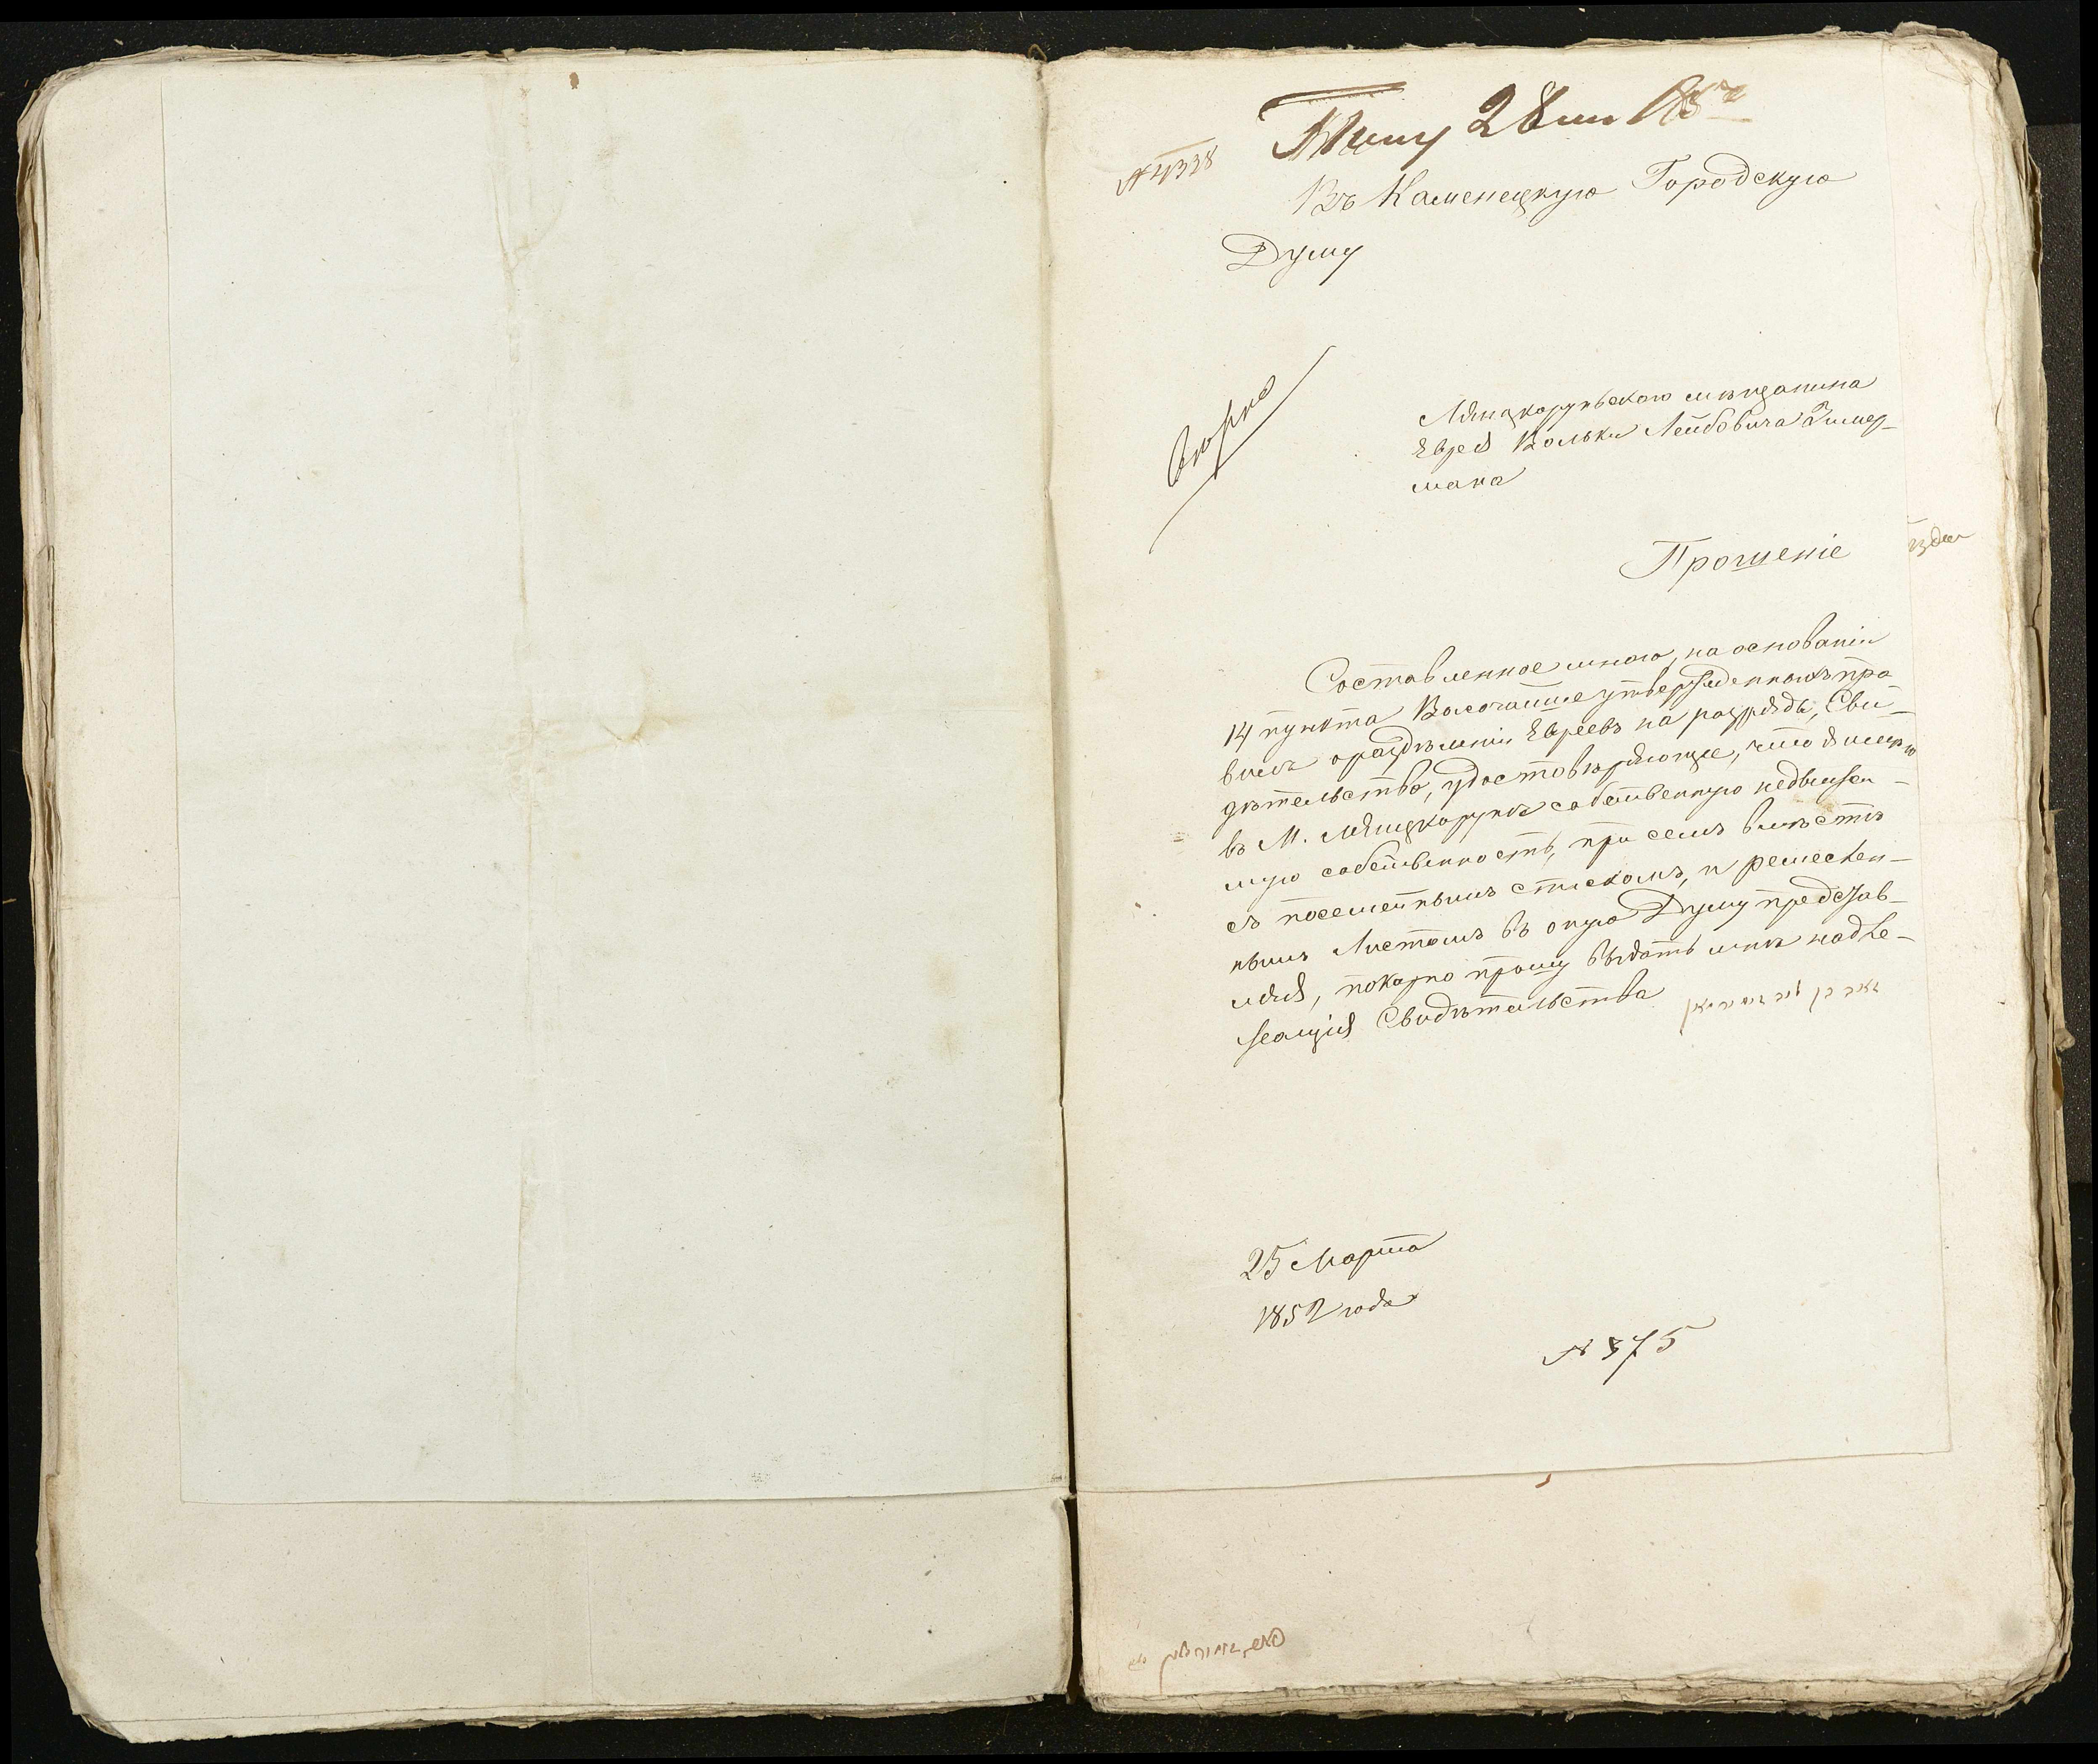 № 4338
28
Въ Каменецкую Городскую
Думу
Лянцкорунскаго мѣщанина
Еврея Вольки Лейбовича Зимер-
мана
Прошеніе
Составленное мною, на основаніи
14 пункта Высочайше утвержденныхъ пра
вилъ о раздѣленіи Евреевъ на разряды, Сви-
дѣтельство, удостовѣряющее, что я имѣю
въ М. Лянцкорунѣ собственную недвижи-
мую собственность, при семъ вмѣстѣ
съ посемейнымъ спискомъ, и ремеслен-
нымъ Листомъ въ оную Думу представ-
ляя, покорно прошу выдать мнѣ надле-
жащія Свидѣтельства
25 Марта
1852 года
№ 375